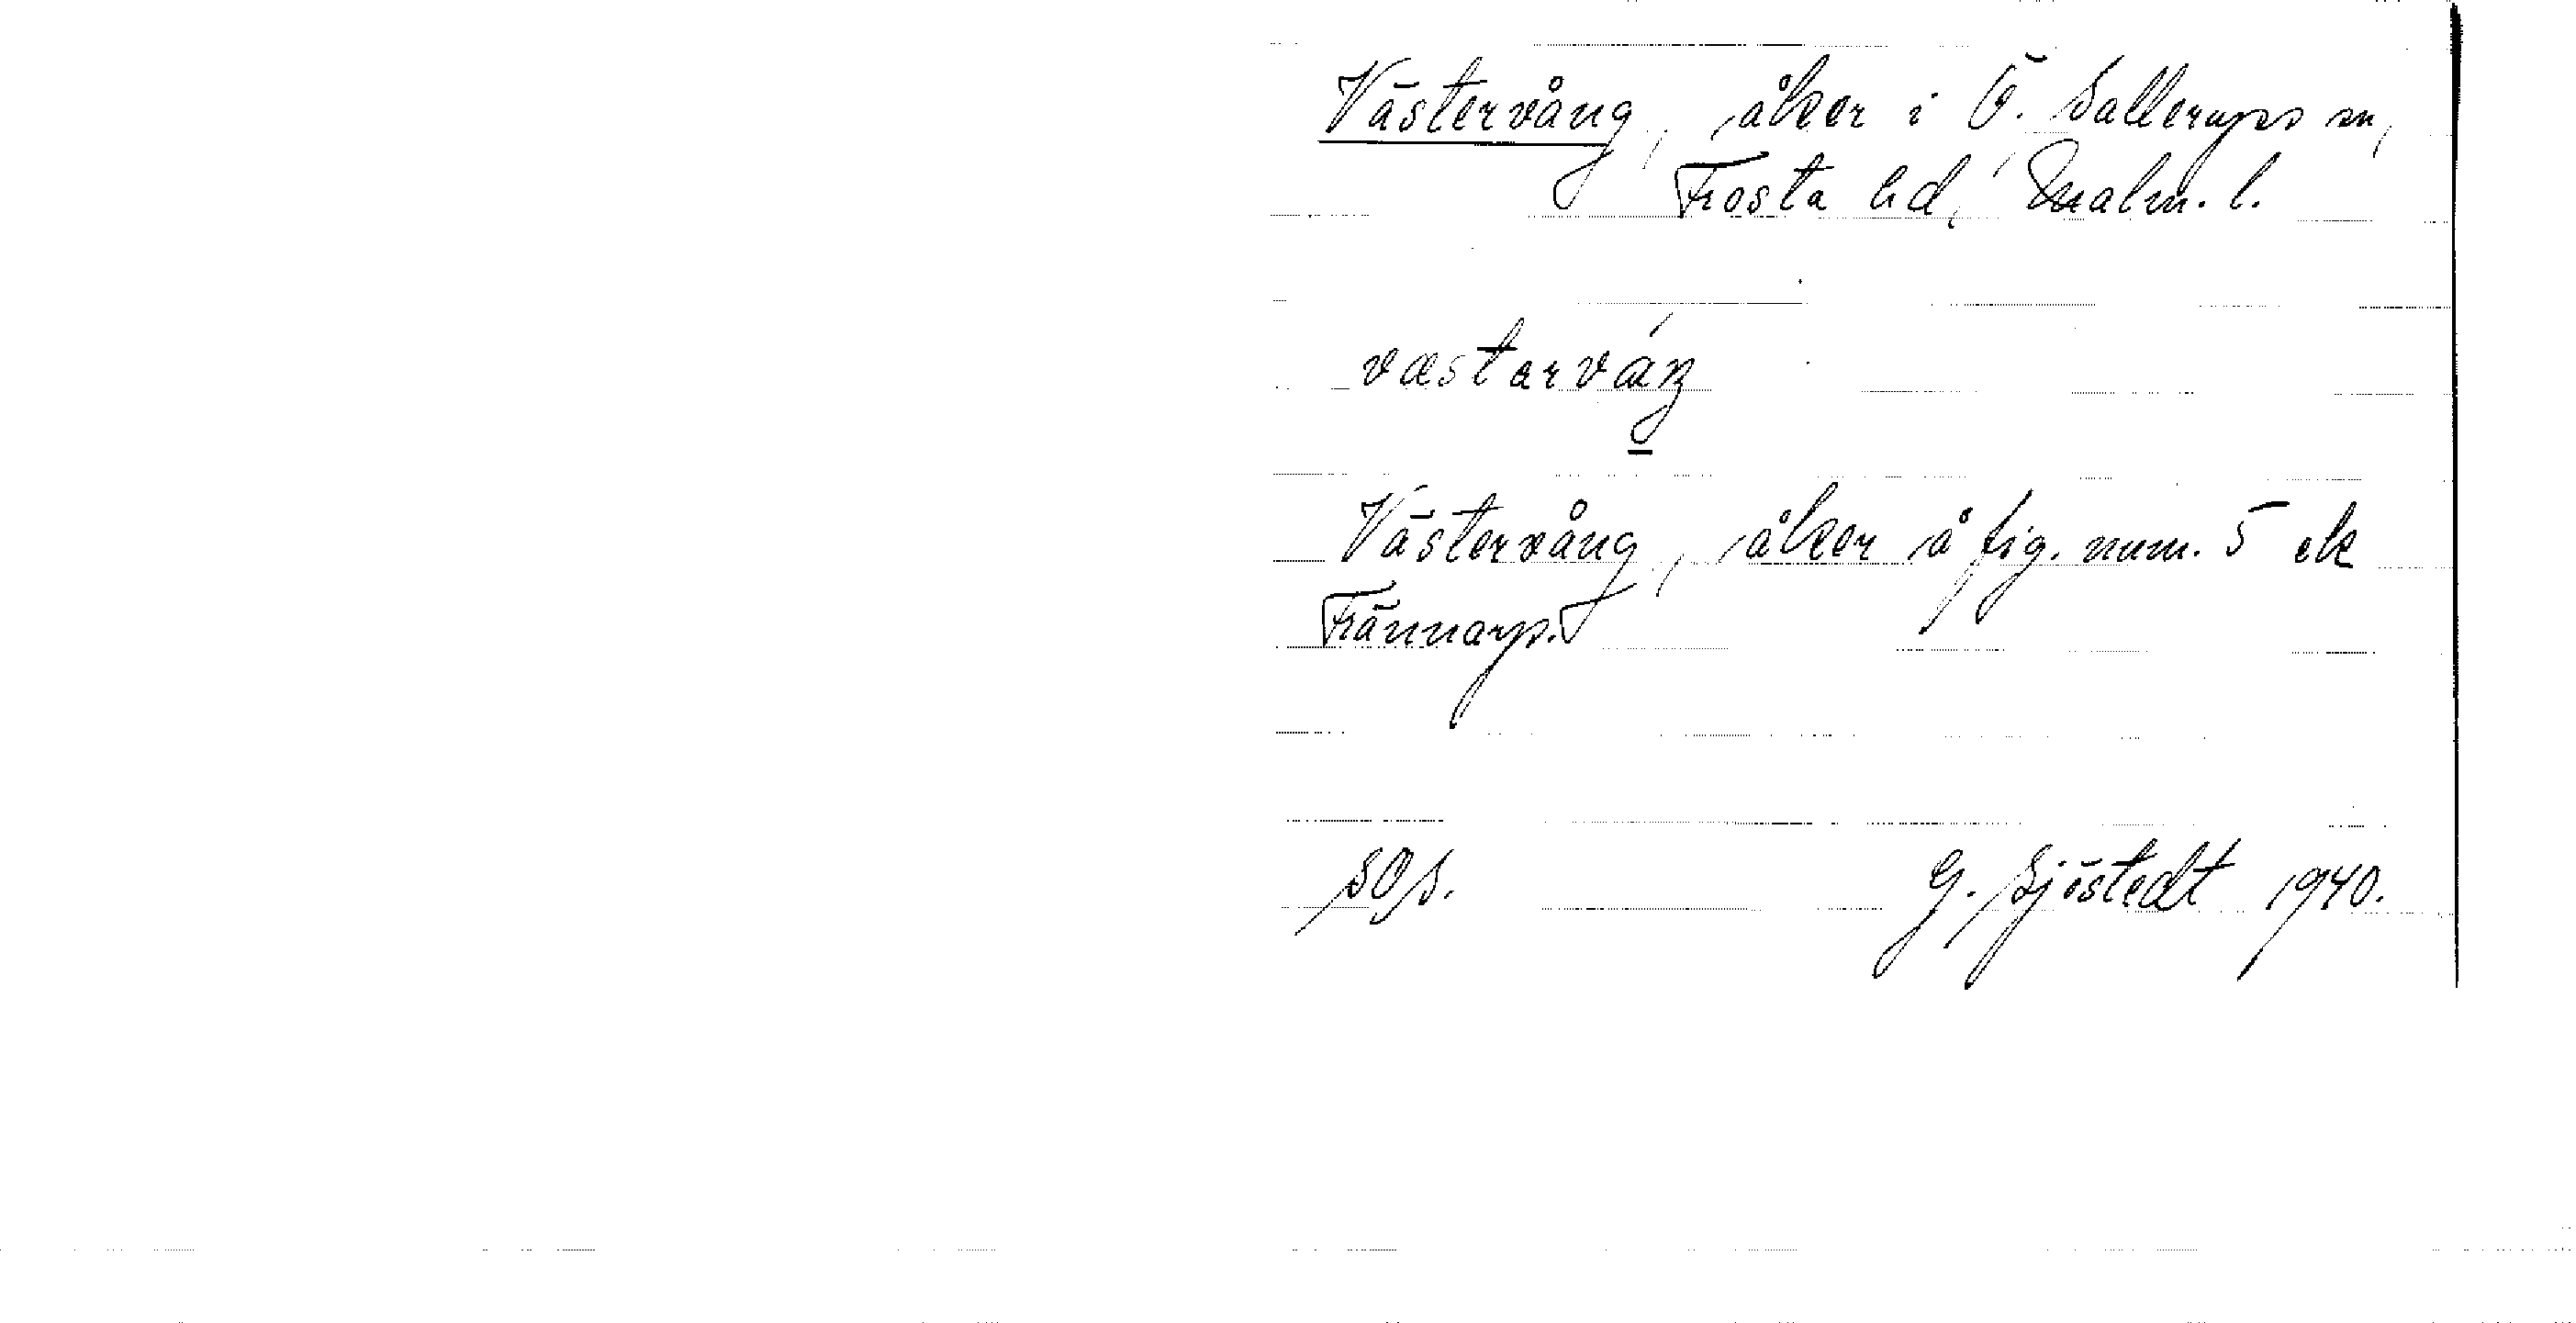 Västervång, åker i Ö. Sallerups sn,
Frosta hd, Malm. l.
væstarváŋ
Västervång, åker å fig. num. 5 ek
Frännarp.
SOS. G. Sjöstedt 1940.